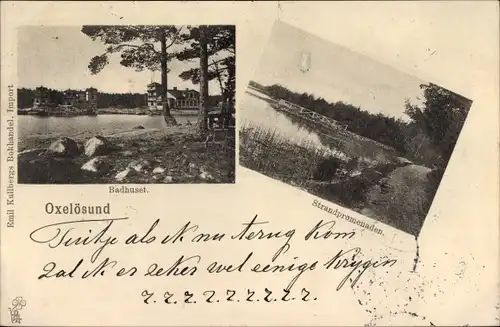 Emil Kullbergs Bokhandel. Import
Badhuset.
Strandpromenaden.
Oxelösund
als ik nu terug kom
zal ik er zeker wel eenige krijgen
z.z.z.z.z.z.z.z.z.